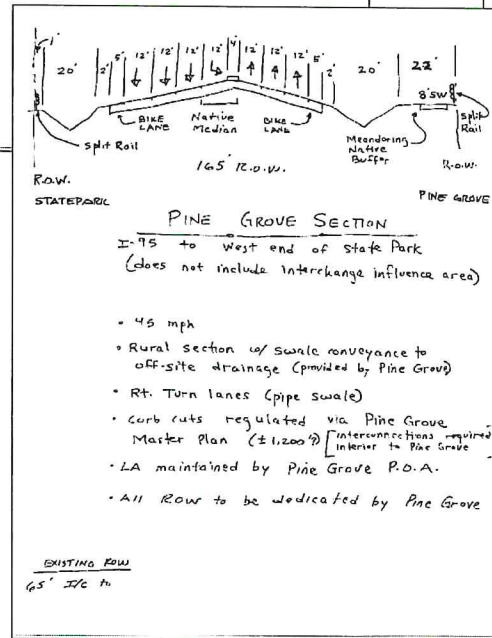 1'
20'
2'
5'
12'
12'
12'
12'
4'
12'
12'
12'
5'
2'
20'
22'
8' SW
BIKE LANE
Native Median
BIKE LANE
Split Rail
Meandering Native Buffer
Split Rail
R.O.W.
165' R.O.W.
R.O.W.
STATE PARK
PINE GROVE
PINE GROVE SECTION
I-95 to West end of State Park
(does not include interchange influence area)
• 45 mph
• Rural section w/ swale conveyance to
off-site drainage (provided by Pine Grove)
• Rt. Turn lanes (pipe swale)
• Curb cuts regulated via Pine Grove
Master Plan (± 1,200') [interconnections required
interior to Pine Grove
• LA maintained by Pine Grove P.O.A.
• All ROW to be dedicated by Pine Grove
EXISTING ROW
65' I/C to